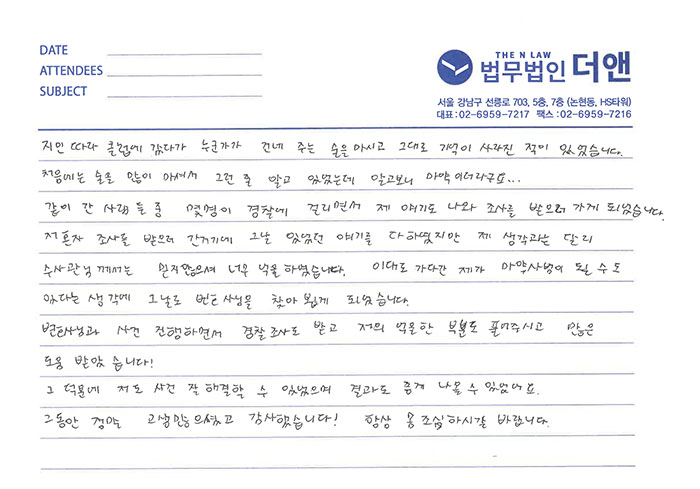 DATE
ATTENDEES
SUBJECT
THE N LAW
법무법인 더앤
서울 강남구 선릉로 703, 5층, 7층 (논현동, HS타워)
대표 : 02-6959-7217 팩스 : 02-6959-7216
지인 따라 클럽에 갔다가 누군가가 건네 주는 술을 마시고 그대로 기억이 사라진 적이 있었습니다.
처음에는 술을 많이 마셔서 그런 줄 알고 있었는데 알고보니 마약이더라구요...
같이 간 사람들 중 몇명이 경찰에 걸리면서 제 얘기도 나와 조사를 받으러 가게 되었습니다.
저 혼자 조사를 받으러 간거기에 그날 있었던 얘기를 다 하였지만 제 생각과는 달리
수사관님께서는 믿지않으셔 너무 억울하였습니다. 이대로 가다간 제가 마약사범이 될 수도
있다는 생각에 그날로 변호사님을 찾아 뵙게 되었습니다.
변호사님과 사건 진행하면서 경찰조사도 받고 저의 억울한 부분도 풀어주시고 많은
도움 받았습니다!
그 덕분에 저도 사건 잘 해결할 수 있었으며 결과도 좋게 나올 수 있었어요.
그동안 정말 고생많으셨고 감사했습니다! 항상 몸 조심하시길 바랍니다.